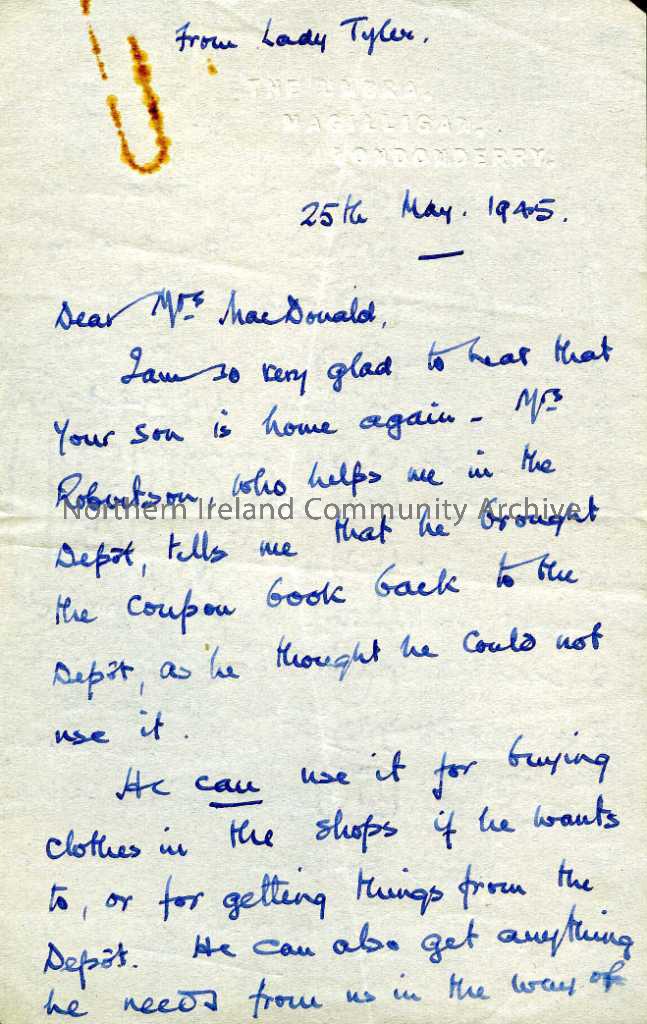 From Lady Tyler.
THE UMBRA,
MAGILLIGAN,
LONDONDERRY.
25th May. 1945.
Dear Mrs MacDonald,
I am so very glad to hear that
your son is home again - Mrs
Robertson, who helps me in the
Northern Ireland Community Archive
Depôt, tells me that he brought
the coupon book back to the
Depôt, as he thought he could not
use it.
He can use it for buying
clothes in the shops if he wants
to, or for getting things from the
Depôt. He can also get anything
he needs from us in the way of